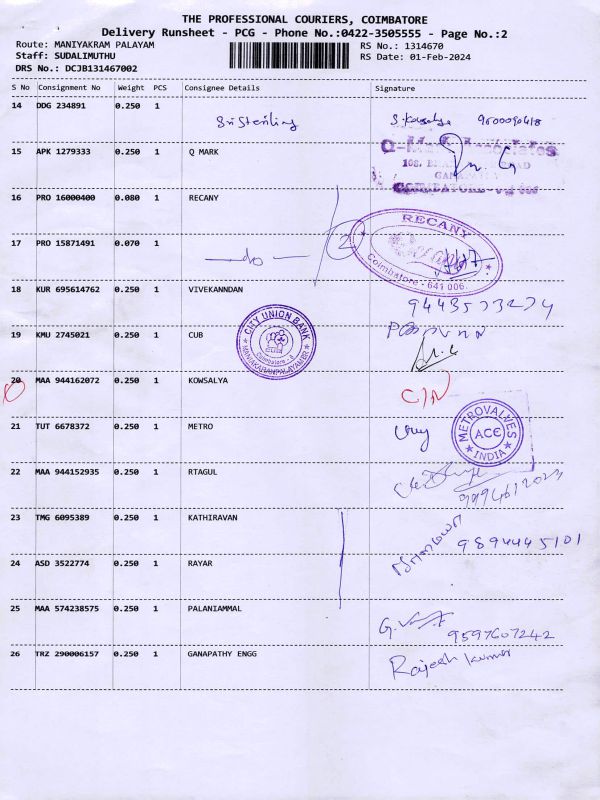 THE PROFESSIONAL COURIERS, COIMBATORE
Delivery Runsheet - PCG - Phone No.:0422-3505555 - Page No.:2
Route: MANIYAKRAM PALAYAM RS No.: 1314670
Staff: SUDALIMUTHU RS Date: 01-Feb-2024
DRS No.: DCJB131467002
S No Consignment No Weight PCS Consignee Details Signature
14 DDG 234891 0.250 1 Sri Sterling
15 APK 1279333 0.250 1 Q MARK
16 PRO 16000400 0.080 1 RECANY
RECANY
Coimbatore - 641 006.
17 PRO 15871491 0.070 1 -do- 2
18 KUR 695614762 0.250 1 VIVEKANNDAN
19 KMU 2745021 0.250 1 CUB
CITY UNION BANK
20 MAA 944162072 0.250 1 KOWSALYA
21 TUT 6678372 0.250 1 METRO
METROVALVES
ACE
INDIA
22 MAA 944152935 0.250 1 RTAGUL
23 TMG 6095389 0.250 1 KATHIRAVAN
9894445101
24 ASD 3522774 0.250 1 RAYAR
25 MAA 574238575 0.250 1 PALANIAMMAL
9597607242
26 TRZ 290006157 0.250 1 GANAPATHY ENGG Rajesh kumar